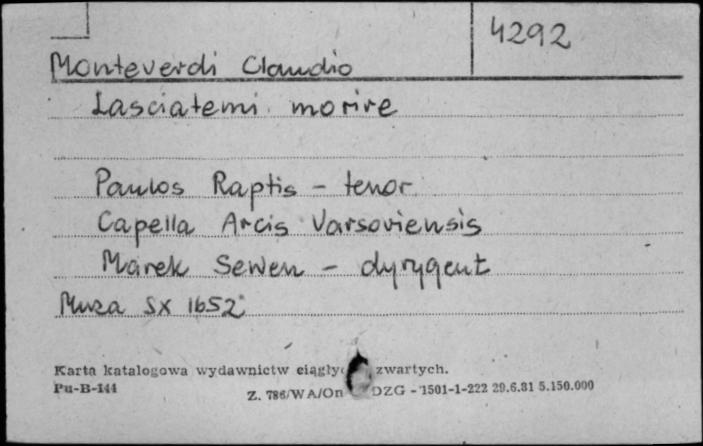 4292
Monteverdi Claudio
Lasciatemi morire
Paulos Raptis - tenor
Capella Arcis Varsoviensis
Marek Sewen - dyrygent
Muza SX 1652
Karta katalogowa wydawnictw ciągłyc zwartych.
Pu-B-144
Z. 786/WA/On DZG - 1501-1-222 29.6.81 5.150.000